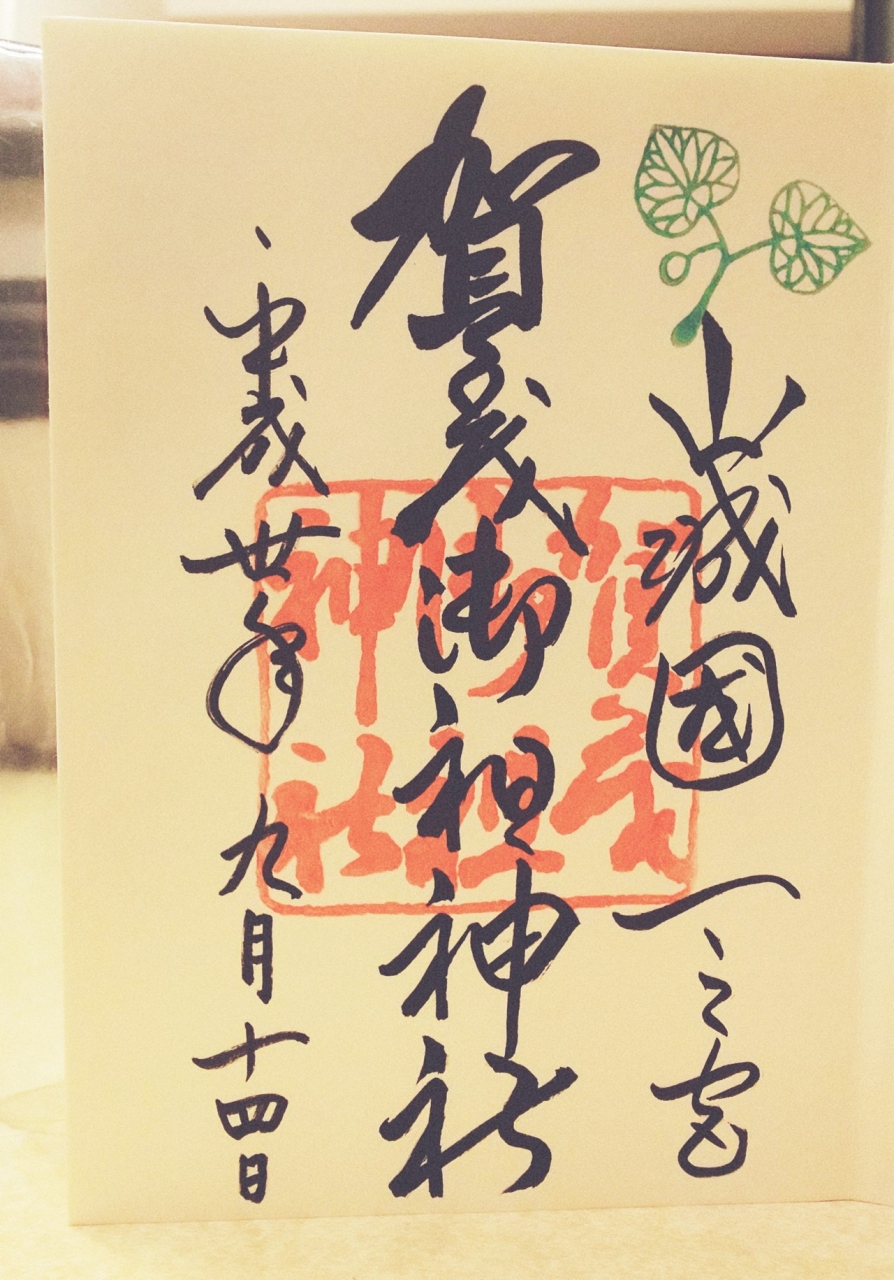 山城國一之宮
賀茂御祖神社
平成丗年九月十四日
賀茂
御祖
神社